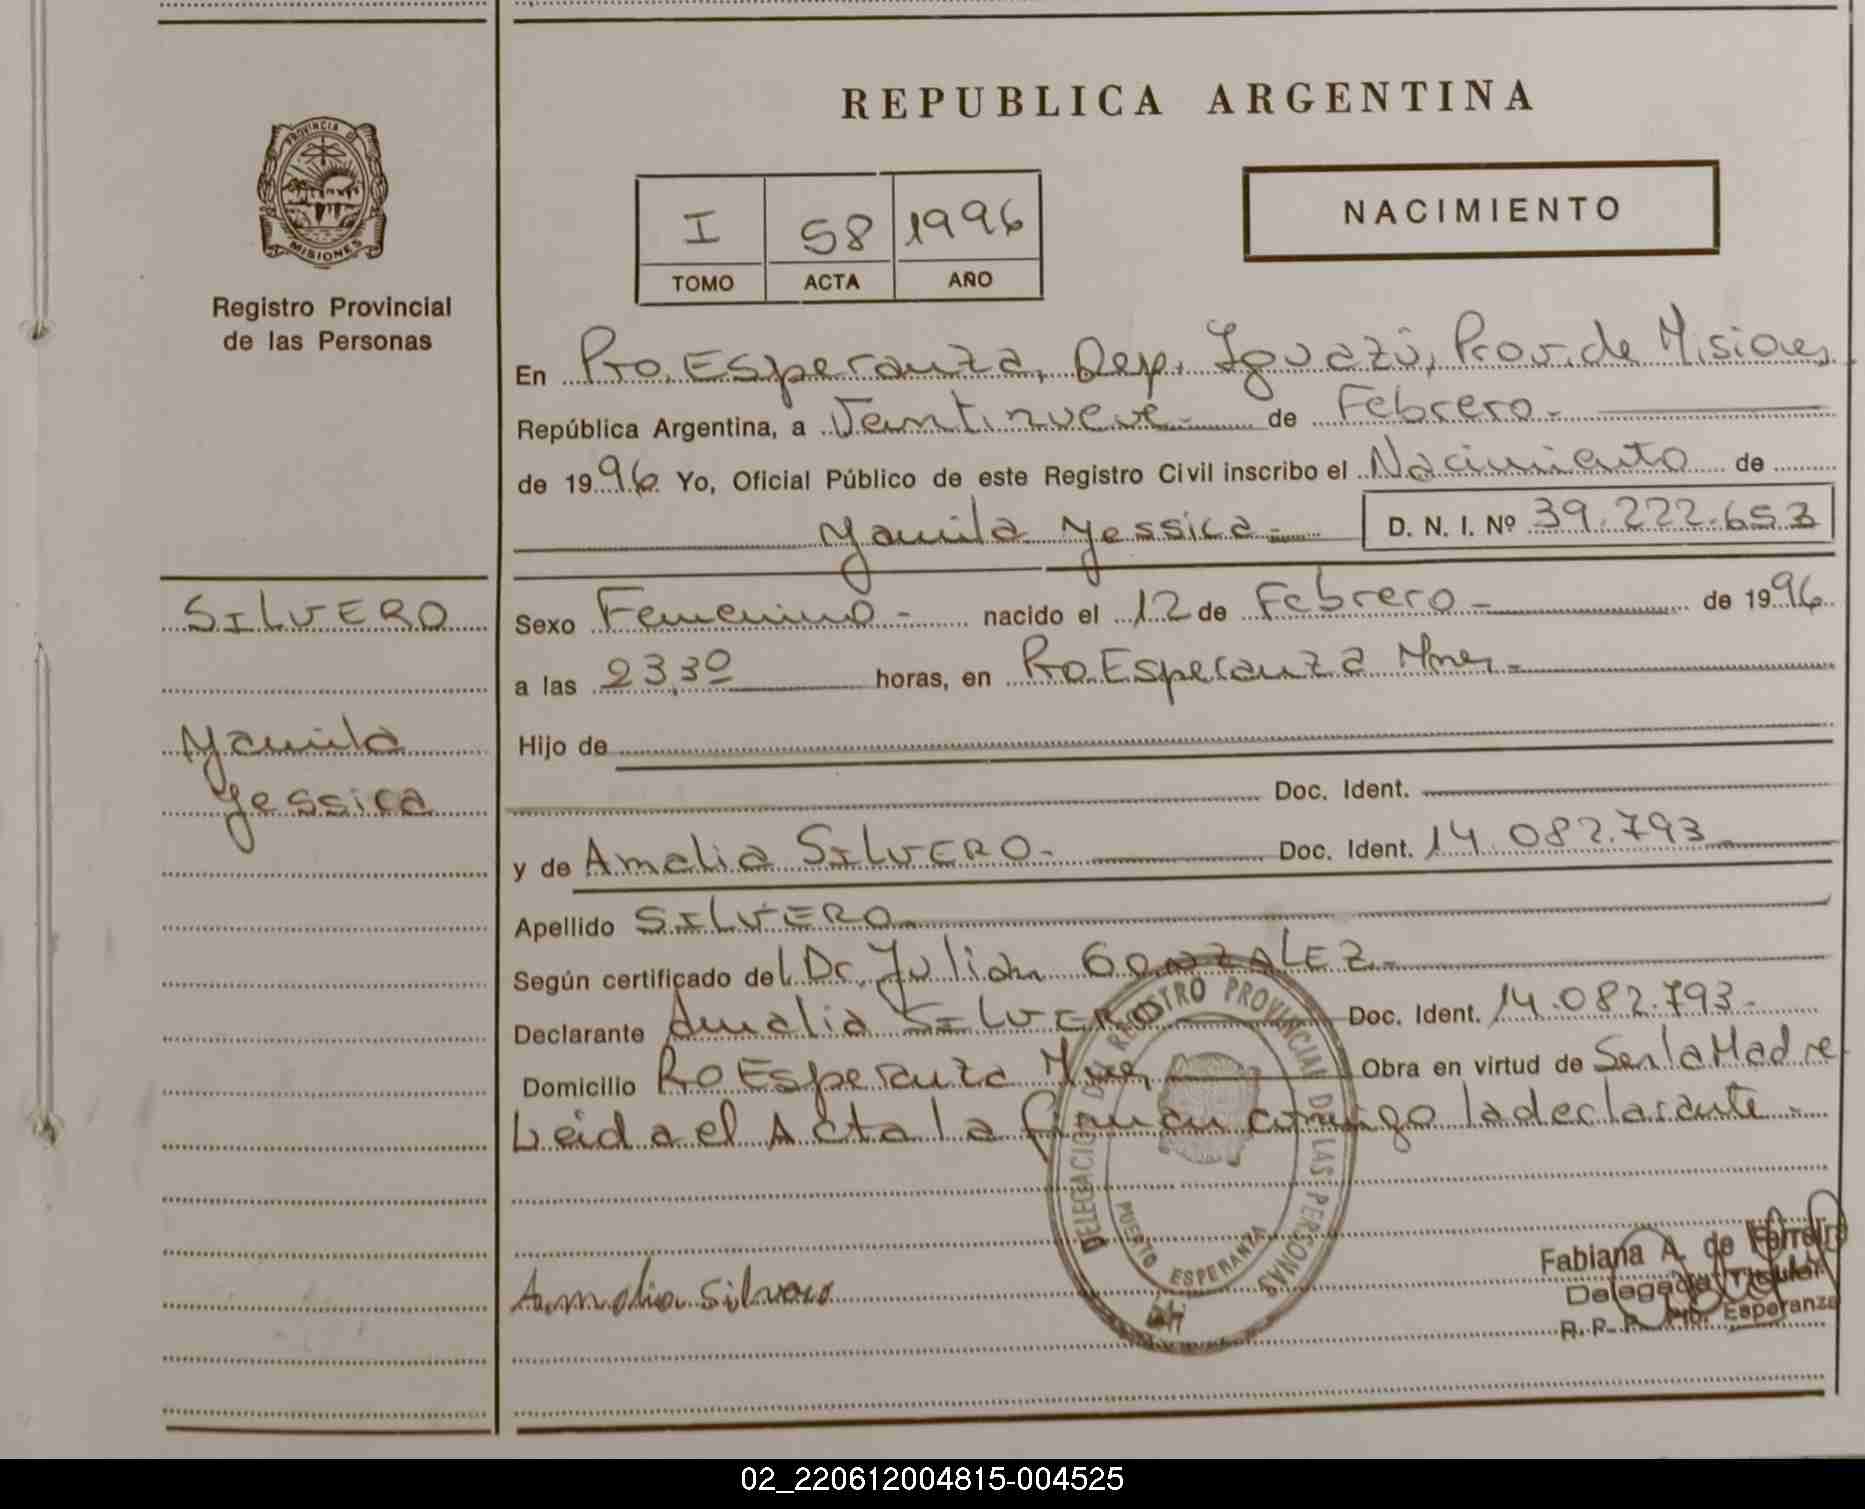 PROVINCIA DE
MISIONES
Registro Provincial
de las Personas
SILVERO
Yamila
Yessica
REPUBLICA ARGENTINA
I 58 1996
TOMO ACTA AÑO
NACIMIENTO
En Pto. Esperanza, Dep. Iguazú, Prov. de Misiones
República Argentina, a Veintinueve.- de Febrero.-
de 1996 Yo, Oficial Público de este Registro Civil inscribo el Nacimiento de
Yamila Yessica.- D. N. I. Nº 39.222.653
Sexo Femenino.- nacido el 12 de Febrero.- de 1996
a las 23,30 horas, en Pto Esperanza Mnes.-
Hijo de
Doc. Ident.
y de Amalia SILVERO.- Doc. Ident. 14.082.793
Apellido SILVERO.-
Según certificado del Dr. Julian GONZALEZ.-
Declarante Amalia SILVERO Doc. Ident. 14.082.793.-
Domicilio Pto Esperanza Mnes, Obra en virtud de Ser la Madre
Leida el Acta la firman conmigo la declarante.-
DELEGACION DEL REGISTRO PROVINCIAL DE LAS PERSONAS
PUERTO ESPERANZA
Amalia Silvero
Fabiana A. de Ferreira
Delegada Titular
R. P. P. Pto. Esperanza
02_220612004815-004525